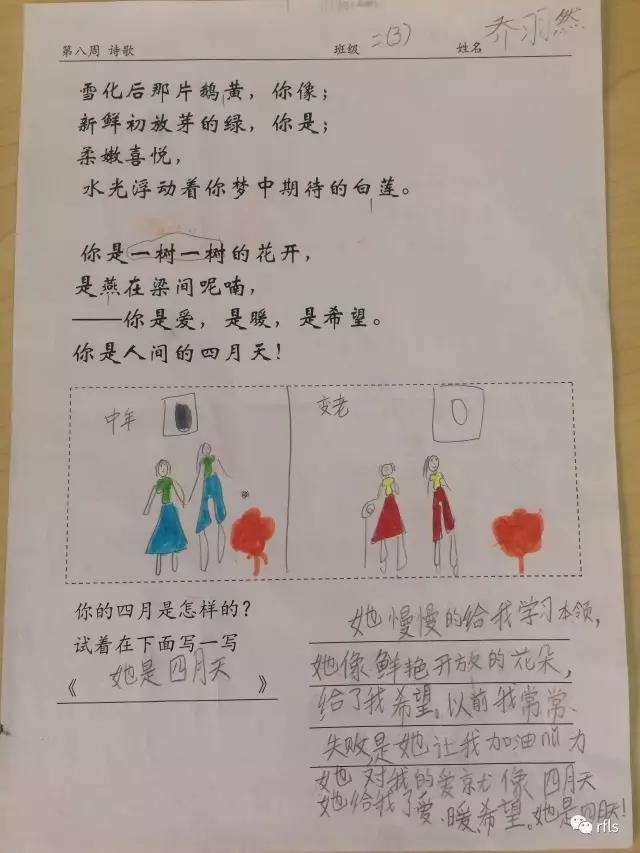 第八周 诗歌 班级 二(3) 姓名 乔羽然
雪化后那片鹅黄，你像；
新鲜初放芽的绿，你是；
柔嫩喜悦，
水光浮动着你梦中期待的白莲。
你是一树一树的花开，
是燕在梁间呢喃，
——你是爱，是暖，是希望。
你是人间的四月天！
中年
变老
你的四月是怎样的？
试着在下面写一写
《她是四月天》
她慢慢的给我学习本领，
她像鲜艳开放的花朵，
给了我希望。以前我常常、
失败，是她让我加油nǔ力
她对我的爱就像四月天
她给我了爱、暖、希望。她是四月天！
rfls